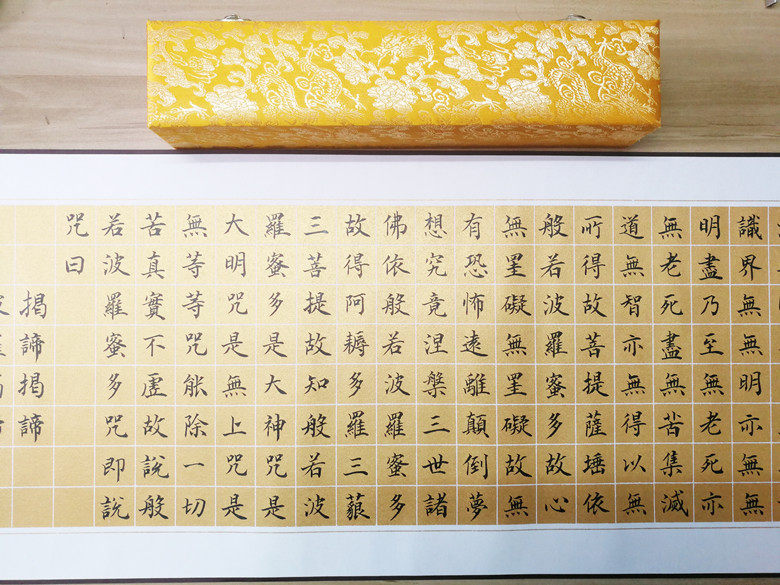 識界無無明亦無無
明盡乃至無老死亦
無老死盡無苦集滅
道無智亦無得以無
所得故菩提薩埵依
般若波羅蜜多故心
無罣礙無罣礙故無
有恐怖遠離顛倒夢
想究竟涅槃三世諸
佛依般若波羅蜜多
故得阿耨多羅三藐
三菩提故知般若波
羅蜜多是大神咒是
大明咒是無上咒是
無等等咒能除一切
苦真實不虛故說般
若波羅蜜多咒即說
咒曰
揭諦揭諦